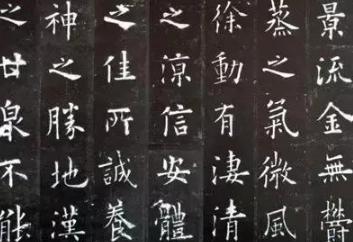 景流金無鬱
蒸之氣微風
徐動有淒清
之涼信安體
之佳所誠養
神之勝地漢
之甘泉不能